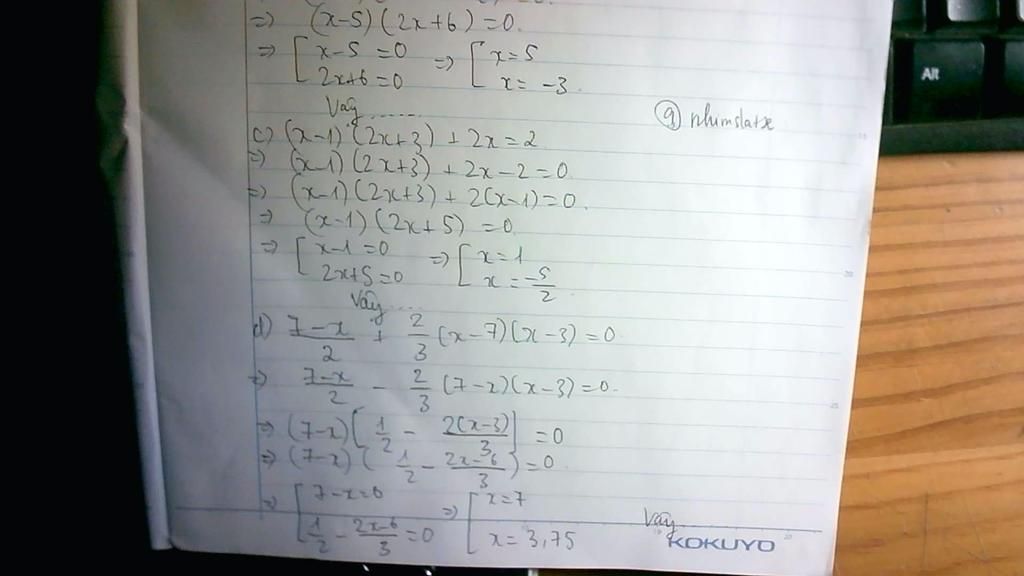 => (x-5)(2x+6)=0.
=> [ x-5=0 => [ x=5
2x+6=0 x=-3
Vậy ......
c) (x-1)(2x+3)+2x=2
=> (x-1)(2x+3)+2x-2=0.
=> (x-1)(2x+3)+2(x-1)=0.
=> (x-1)(2x+5)=0.
=> [ x-1=0 => [ x=1
2x+5=0 x=-5/2
Vậy ....
d) 7-x/2 + 2/3 (x-7)(x-3)=0.
=> 7-x/2 - 2/3 (7-x)(x-3)=0.
=> (7-x)[1/2 - 2(x-3)/3] =0
=> (7-x)(1/2 - 2x-6/3)=0
=> [ 7-x=0 => [ x=7
1/2 - 2x-6/3 =0 x=3,75
Vậy
KOKUYO
Alt